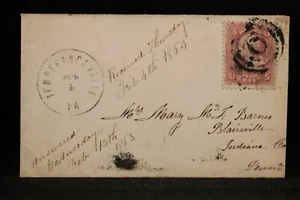 TEMPERANCEVILLE
FEB
4
PA
Received Thursday
Feb 4th 1863
Mrs Mary M. J. Barnes
Blairsville
Indiana Co
Penn
Answered
Wednesday
Feb 18th 1863